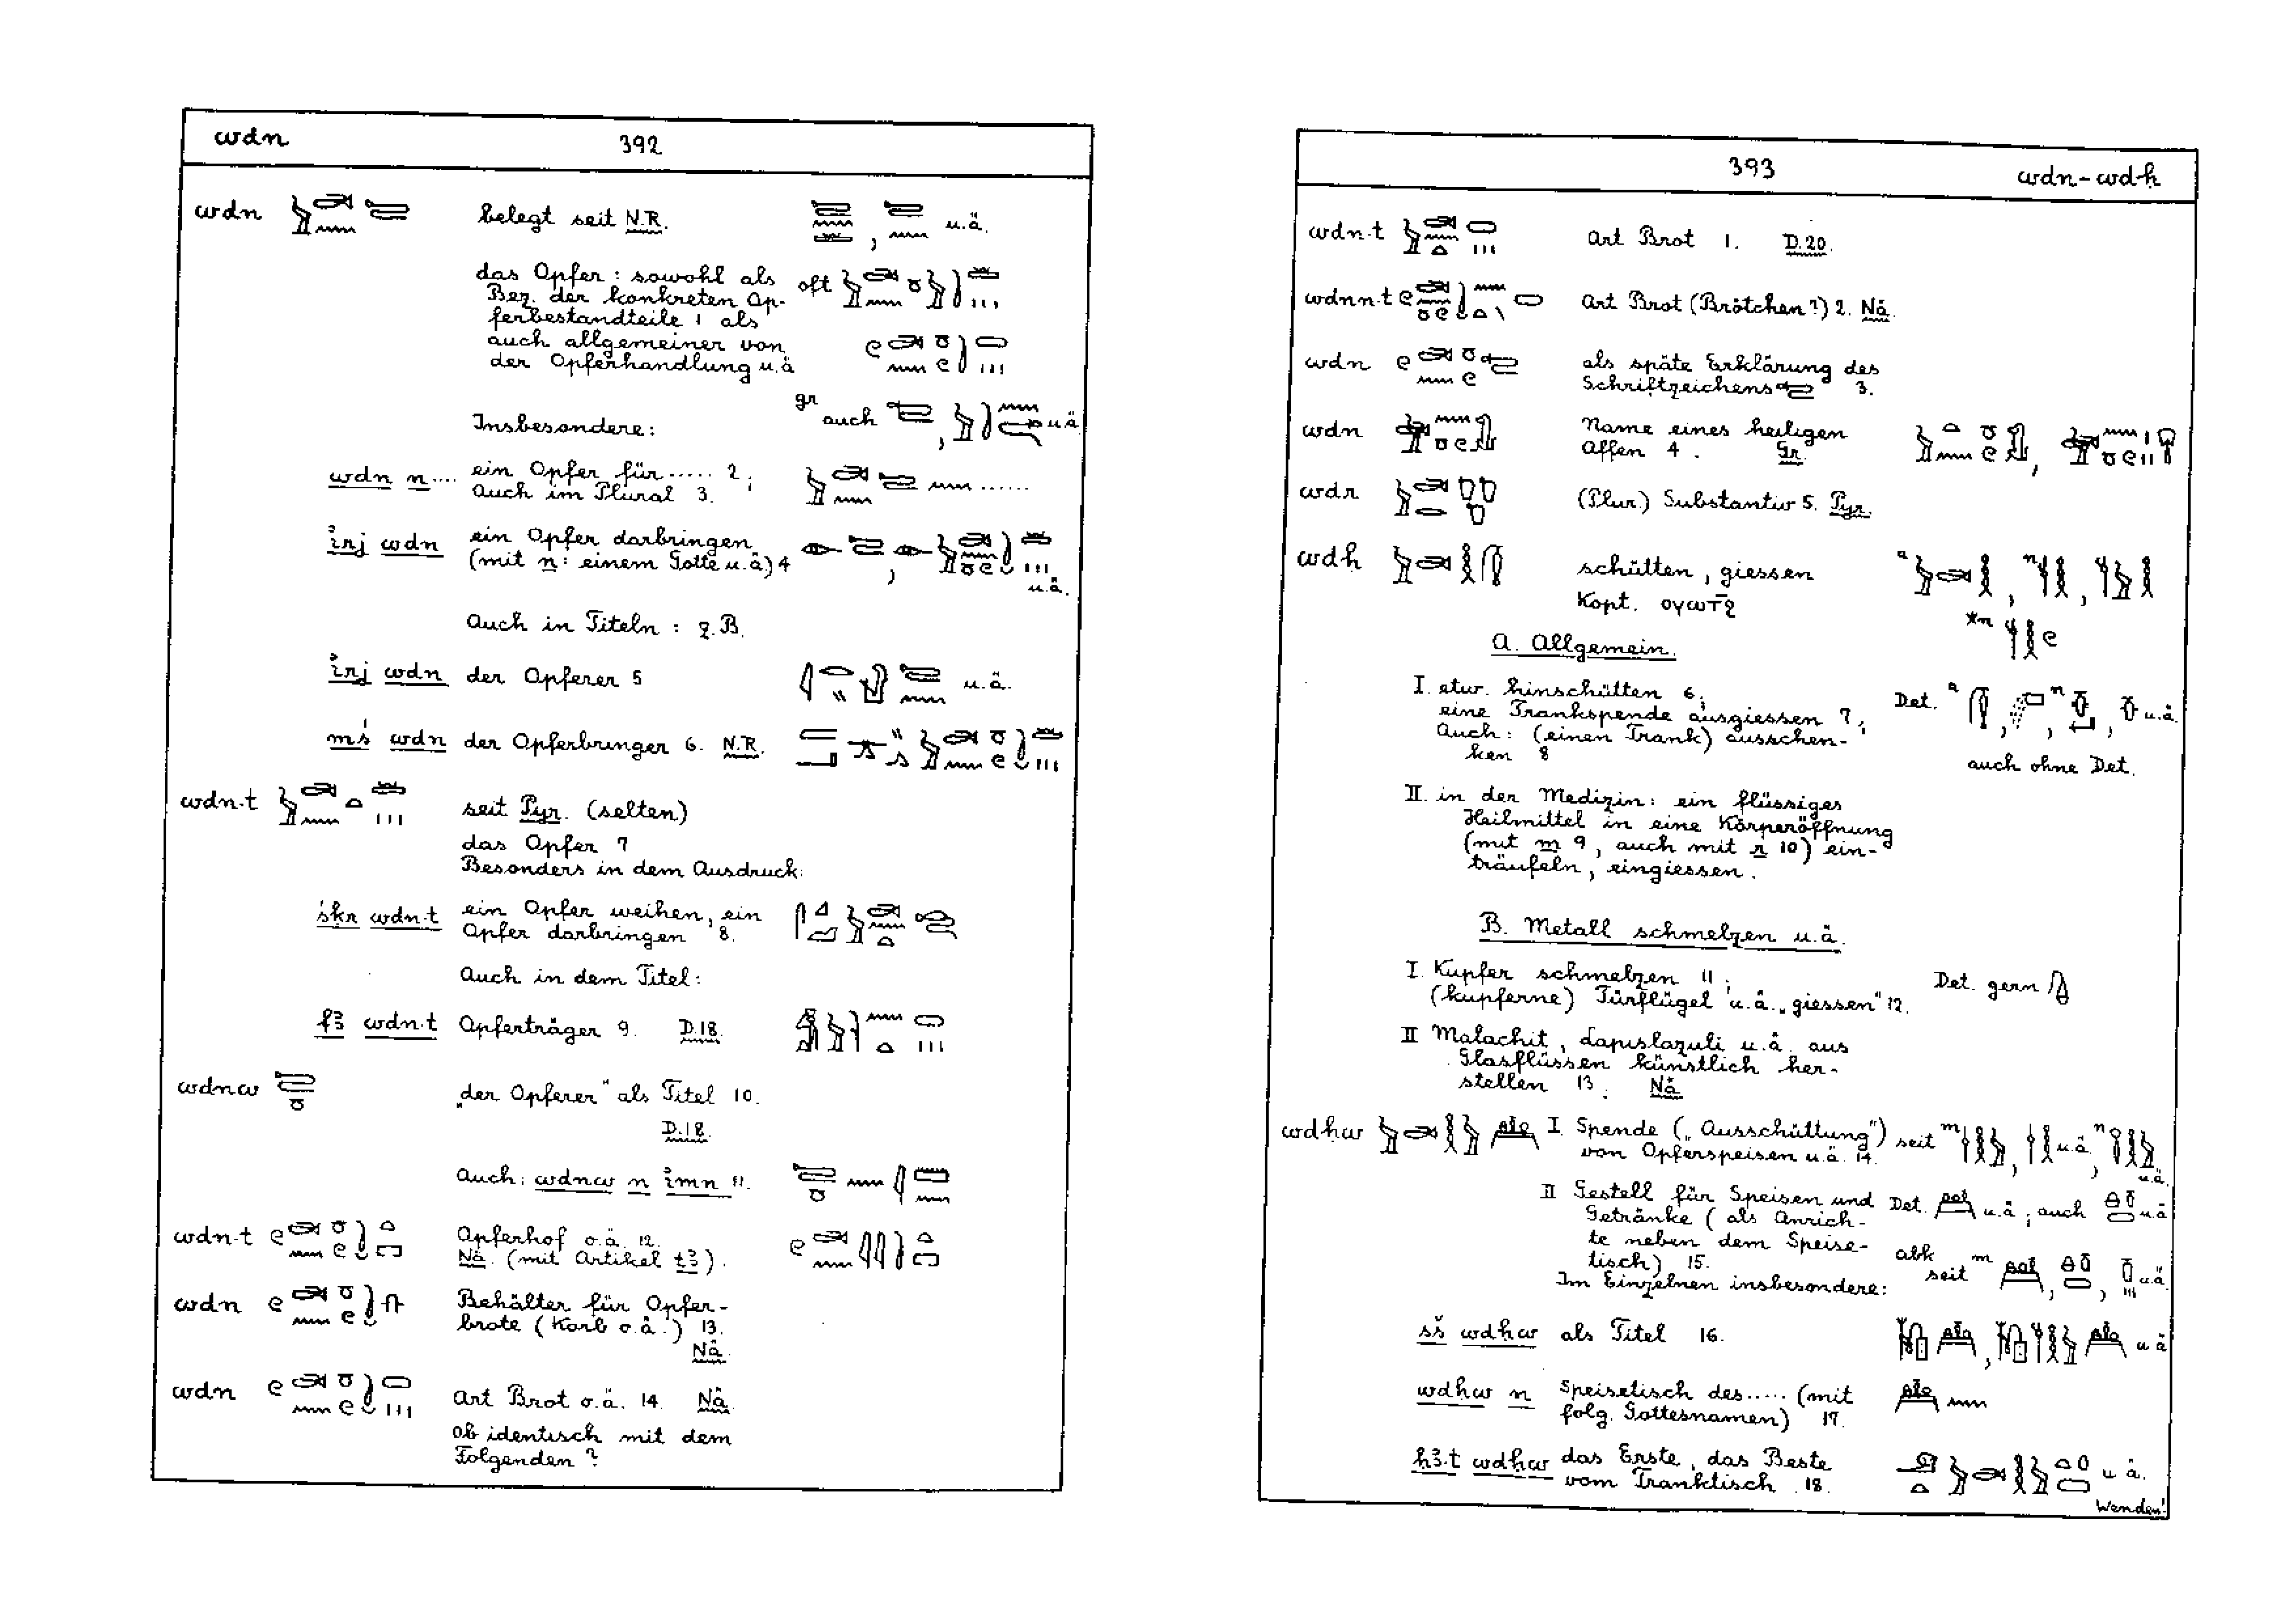 wdn 392
wdn belegt seit N.R. u.ä.
das Opfer: sowohl als oft
Bez. der konkreten Op-
ferbestandteile 1 als
auch allgemeiner von
der Opferhandlung u.ä
gr auch u.ä
Insbesondere:
wdn n .... ein Opfer für ..... 2;
auch im Plural 3.
irj wdn ein Opfer darbringen
(mit n: einem Gotte u.ä) 4
u.ä.
Auch in Titeln: z.B.
irj wdn der Opferer 5 u.ä.
mś wdn der Opferbringer 6. N.R.
wdn·t seit Pyr. (selten)
das Opfer 7
Besonders in dem Ausdruck:
śkr wdn·t ein Opfer weihen, ein
Opfer darbringen 8.
Auch in dem Titel:
fꜣ wdn·t Opferträger 9. D.18.
wdnw „der Opferer" als Titel 10.
D.18.
Auch: wdnw n imn 11.
wdn·t Opferhof o.ä. 12.
Nä. (mit Artikel tꜣ).
wdn Behälter für Opfer-
brote (Korb o.ä.) 13.
Nä.
wdn Art Brot o.ä. 14. Nä.
ob identisch mit dem
Folgenden?
393 wdn-wdḥ
wdn·t Art Brot 1. D.20.
wdnn·t Art Brot (Brötchen?) 2. Nä.
wdn als späte Erklärung des
Schriftzeichens 3.
wdn Name eines heiligen
Affen 4. Gr.
wdr (Plur.) Substantiv 5. Pyr.
wdḥ schütten, giessen
Kopt. ⲟⲩⲱⲧϩ
A. Allgemein.
I. etw. hinschütten 6;
eine Trankspende ausgiessen 7;
Auch: (einen Trank) ausschen-
ken 8
Det. u.ä.
auch ohne Det.
II. in der Medizin: ein flüssiges
Heilmittel in eine Körperöffnung
(mit m 9, auch mit r 10) ein-
träufeln, eingiessen.
B. Metall schmelzen u.ä.
I. Kupfer schmelzen 11; Det. gern
(kupferne) Türflügel u.ä. „giessen" 12.
II Malachit, Lapislazuli u.ä. aus
Glasflüssen künstlich her-
stellen 13. Nä
wdḥw I. Spende („Ausschüttung") seit u.ä.
von Opferspeisen u.ä. 14. u.ä.
II Gestell für Speisen und Det. u.ä; auch u.ä
Getränke (als Anrich-
te neben dem Speise-
tisch) 15. abk seit u.ä.
Im Einzelnen insbesondere:
sš wdḥw als Titel 16. u ä
wdḥw n Speisetisch des ..... (mit
folg. Gottesnamen) 17.
ḥꜣ·t wdḥw das Erste, das Beste
vom Tranktisch 18. u ä.
Wenden!